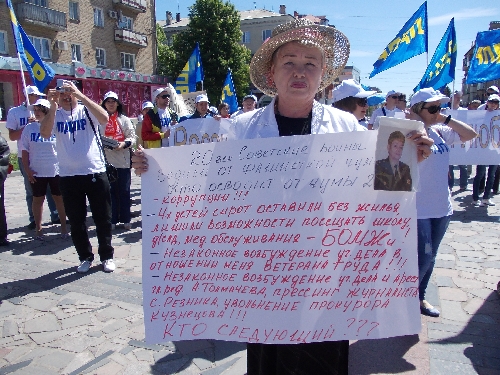 70 лет Советские воины
от фашистской чумы
Кто освободит от чумы 21
- коррупции!!!
- Ч/х детей сирот оставили без жилья
лишили возможности посещать школу,
д/сад, мед. обслуживания - БОМЖи!
- Незаконное возбуждение уг. дела в
отношении меня ВЕТЕРАНА ТРУДА!!!
- Незаконное возбуждение уг. дела и арест
А. Толмачева, прессинг журналиста
С. Резника, увольнение прокурора
Кузнецова!!!
КТО СЛЕДУЮЩИЙ???